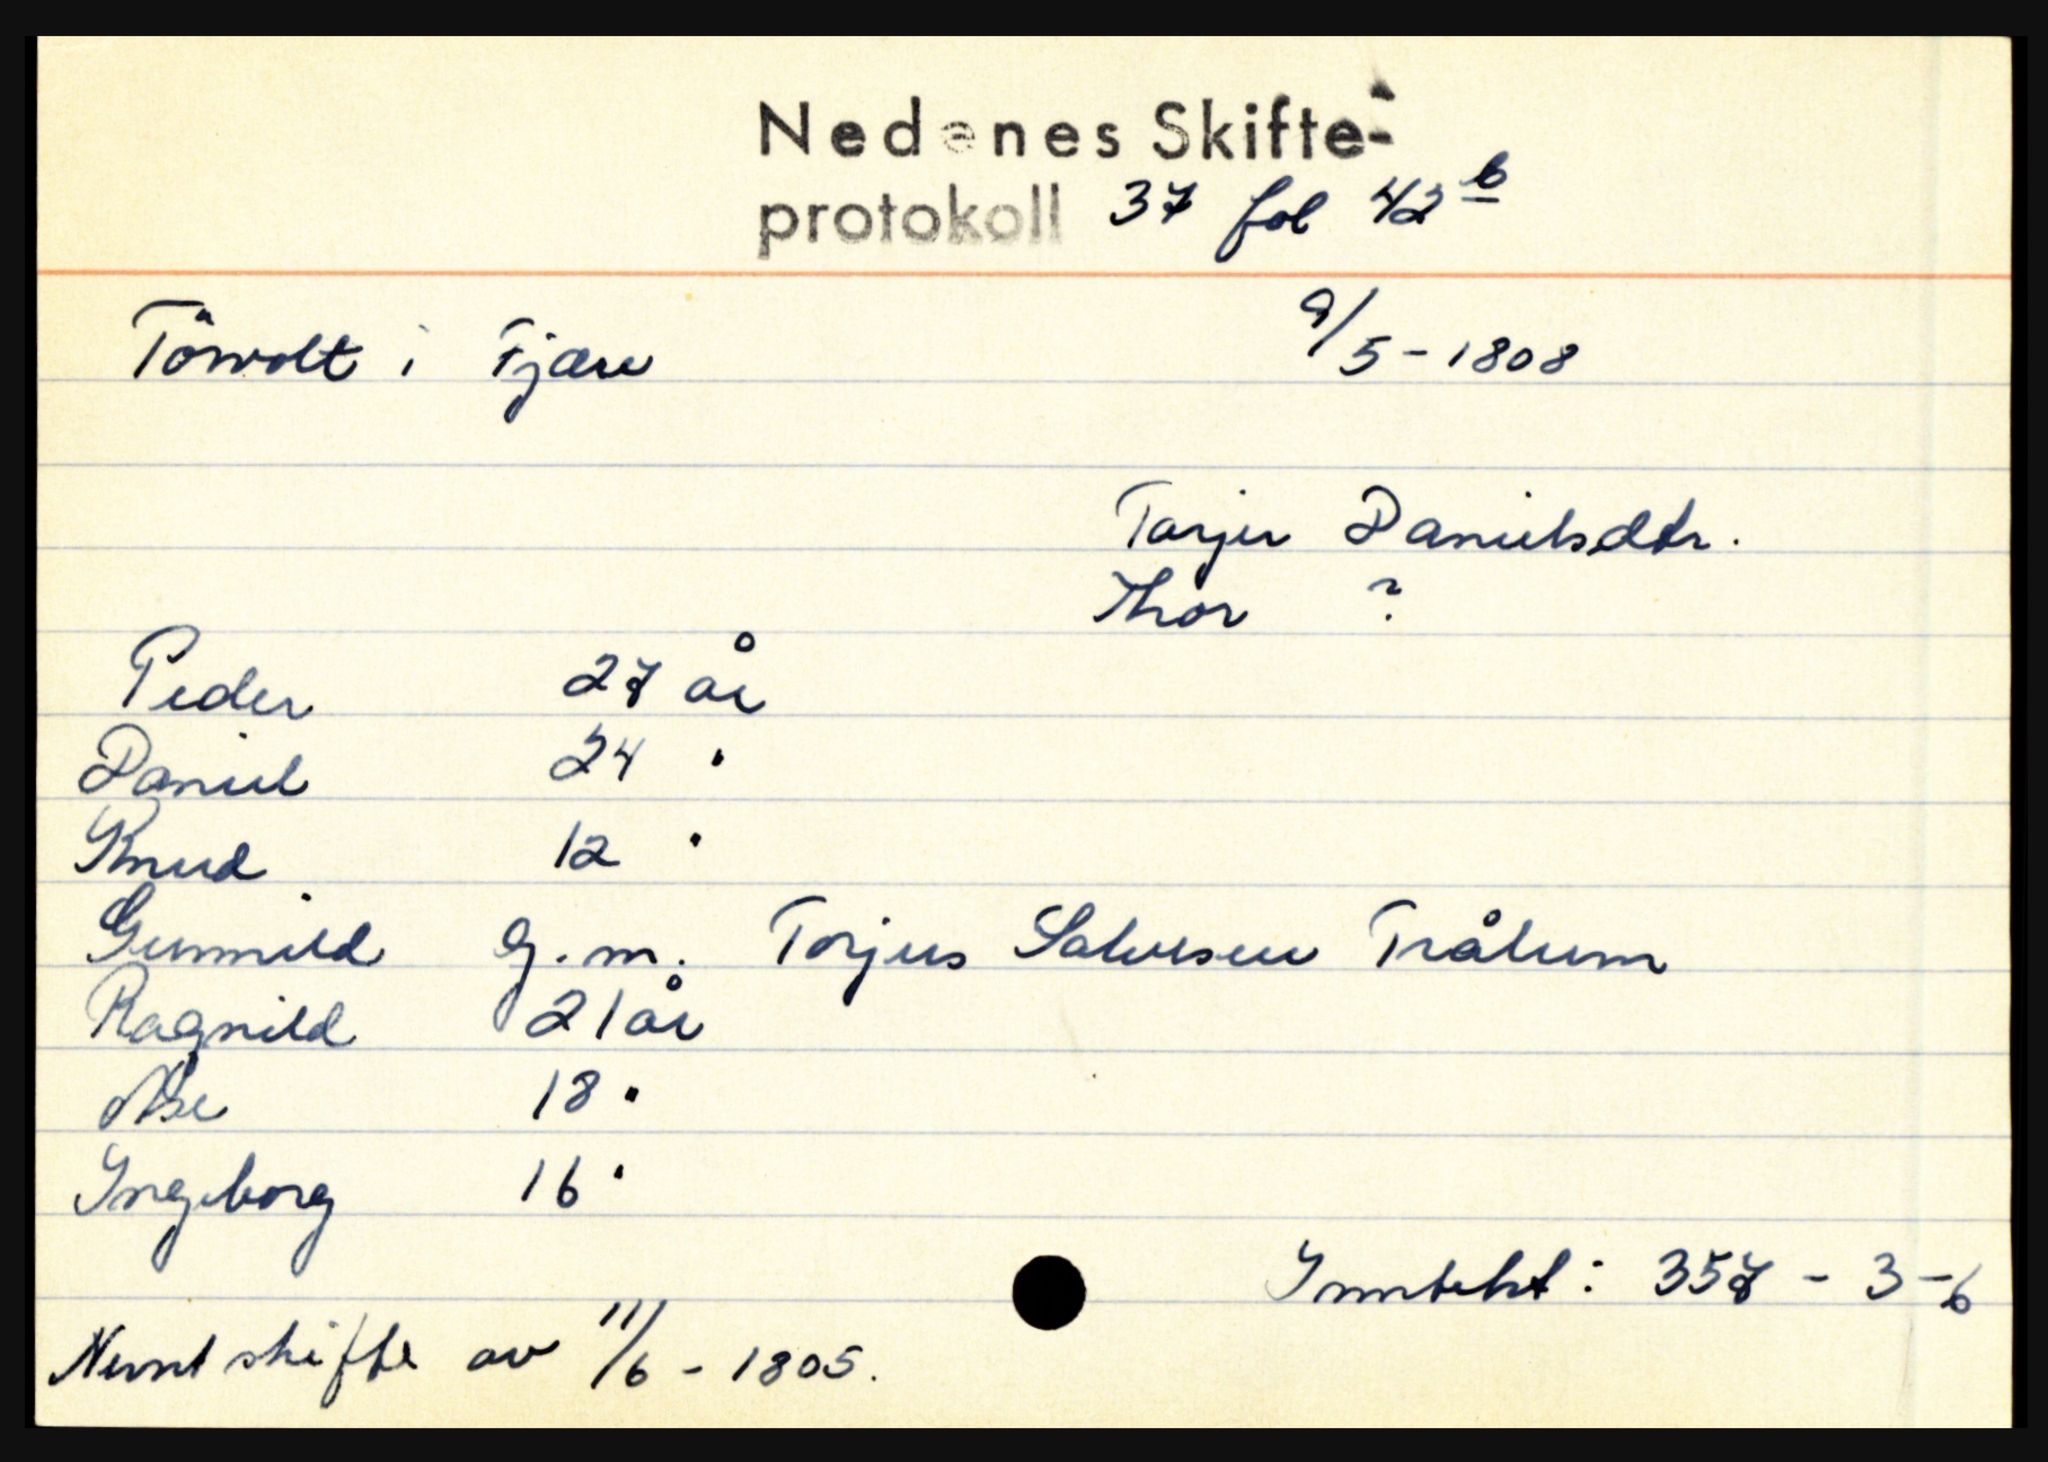 Nedenes Skifte-
protokoll 37 fol 42 b
Törvolt i Fjære 9/5-1808
Tarjer Danielsdtr.
Thor ?
Peder 27 år
Daniel 24 "
Knud 12 "
Gunnild g.m. Torjus Salvesen Trålum
Ragnild 21 år
Åse 18 "
Ingeborg 16 "
Inntekt: 357 - 3 - 6
Nevnt skifte av 11/6 - 1805.